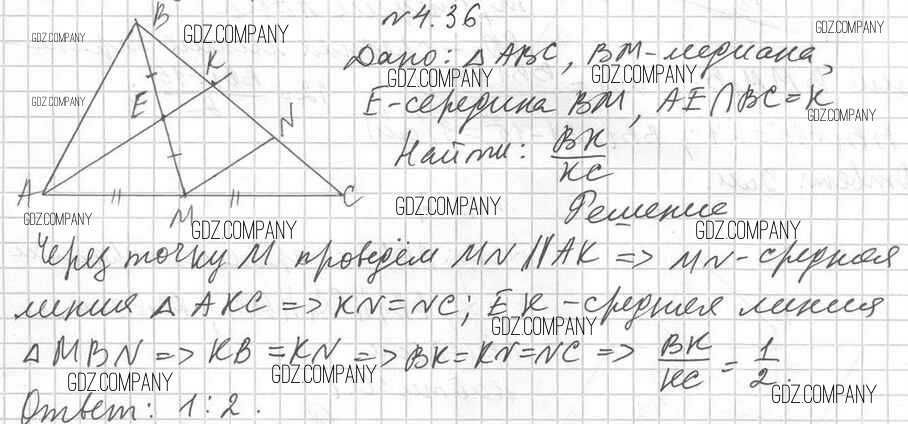 N 4.36
B
K
E
N
A
M
C
Дано: △ABC, BM-медиана,
E-середина BM, AE∩BC=K
Найти: BK/KC
Решение
Через точку M проведём MN || AK => MN-средняя
линия △ AKC => KN=NC; EK-средняя линия
△ MBN => KB=KN => BK=KN=NC => BK/KC = 1/2.
Ответ: 1:2.
GDZ.COMPANY
GDZ.COMPANY
GDZ.COMPANY
GDZ.COMPANY
GDZ.COMPANY
GDZ.COMPANY
GDZ.COMPANY
GDZ.COMPANY
GDZ.COMPANY
GDZ.COMPANY
GDZ.COMPANY
GDZ.COMPANY
GDZ.COMPANY
GDZ.COMPANY
GDZ.COMPANY